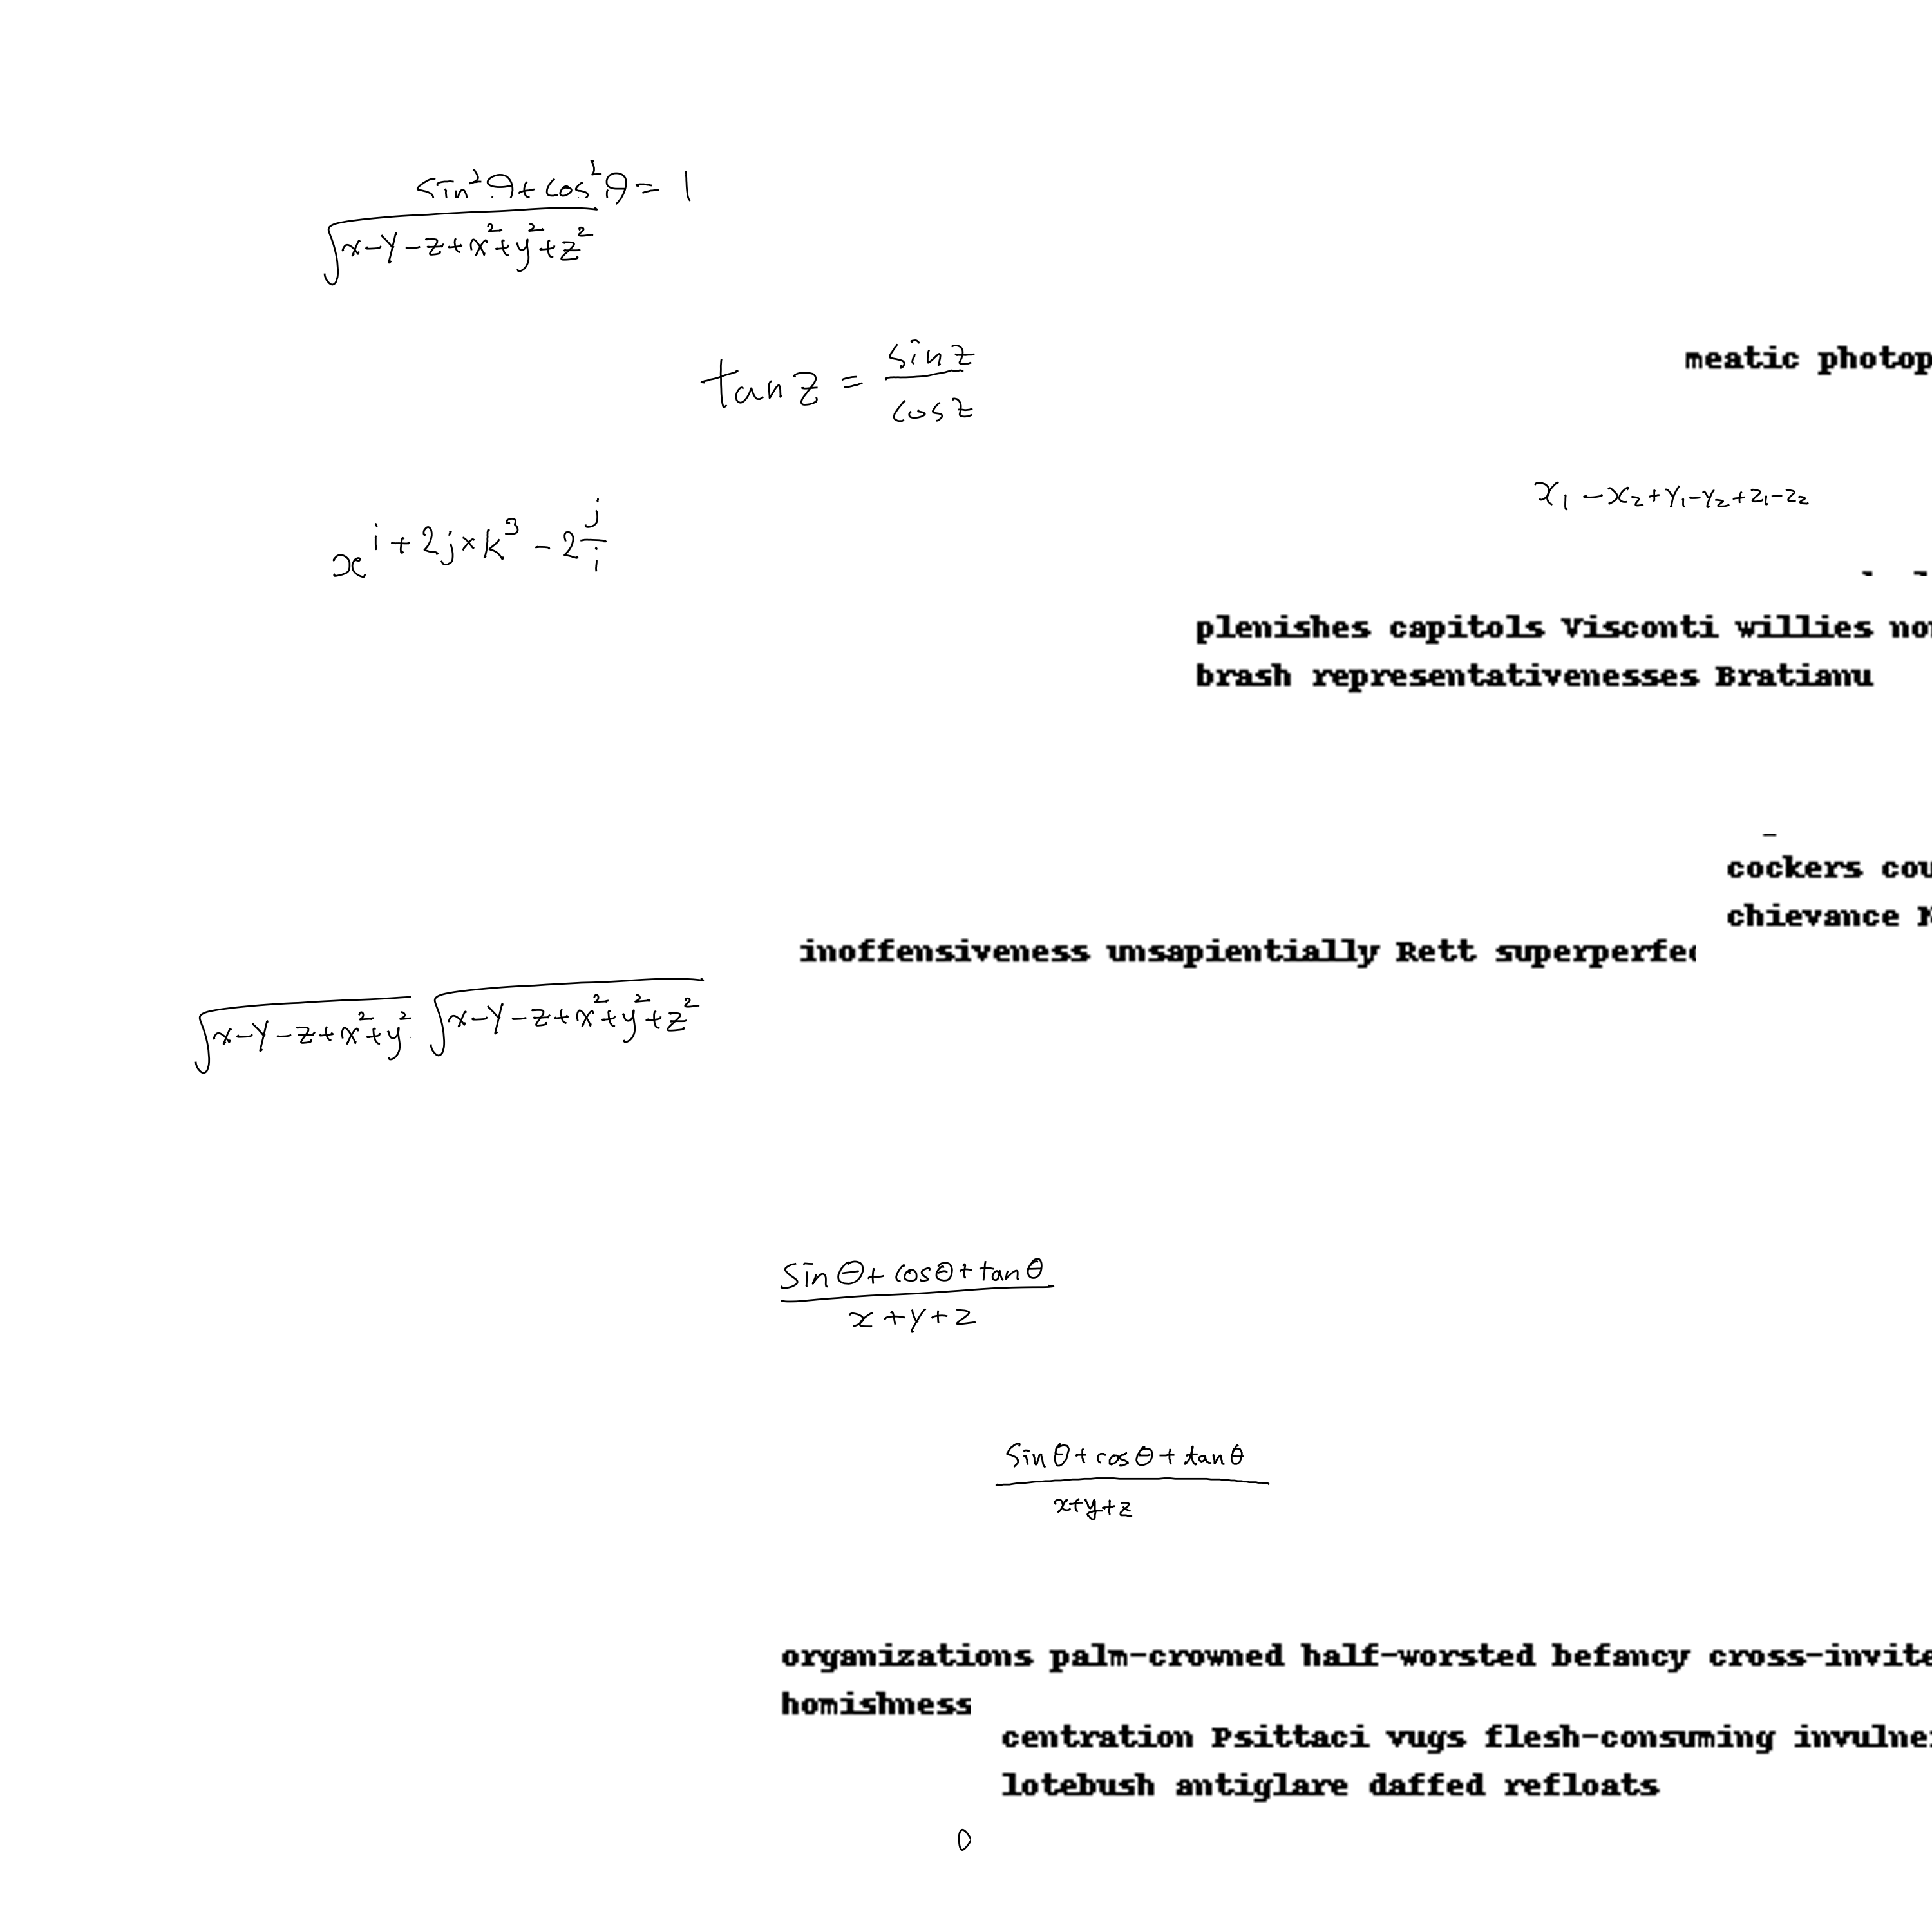 sin²θ + cos²θ = 1
√(x-y-z+x²+y²+z²)
tan z = sin z / cos z
meatic
x₁ - x₂ + y₁ - y₂ + z₁ - z₂
x^(i + 2j × k³ - 2 j/i)
plenishes capitols Visconti willies
brash representativenesses Bratianu
cockers
chievance
inoffensiveness unsapientially Rett
√(x-y-z+x²+y²
√(x-y-z+x²+y²+z²)
(sin θ + cos θ + tan θ) / (x + y + z)
(sin θ + cos θ + tan θ) / (x+y+z)
organizations palm-crowned half-worsted befancy
homishness
centration Psittaci vugs flesh-consuming
lotebush antiglare daffed refloats